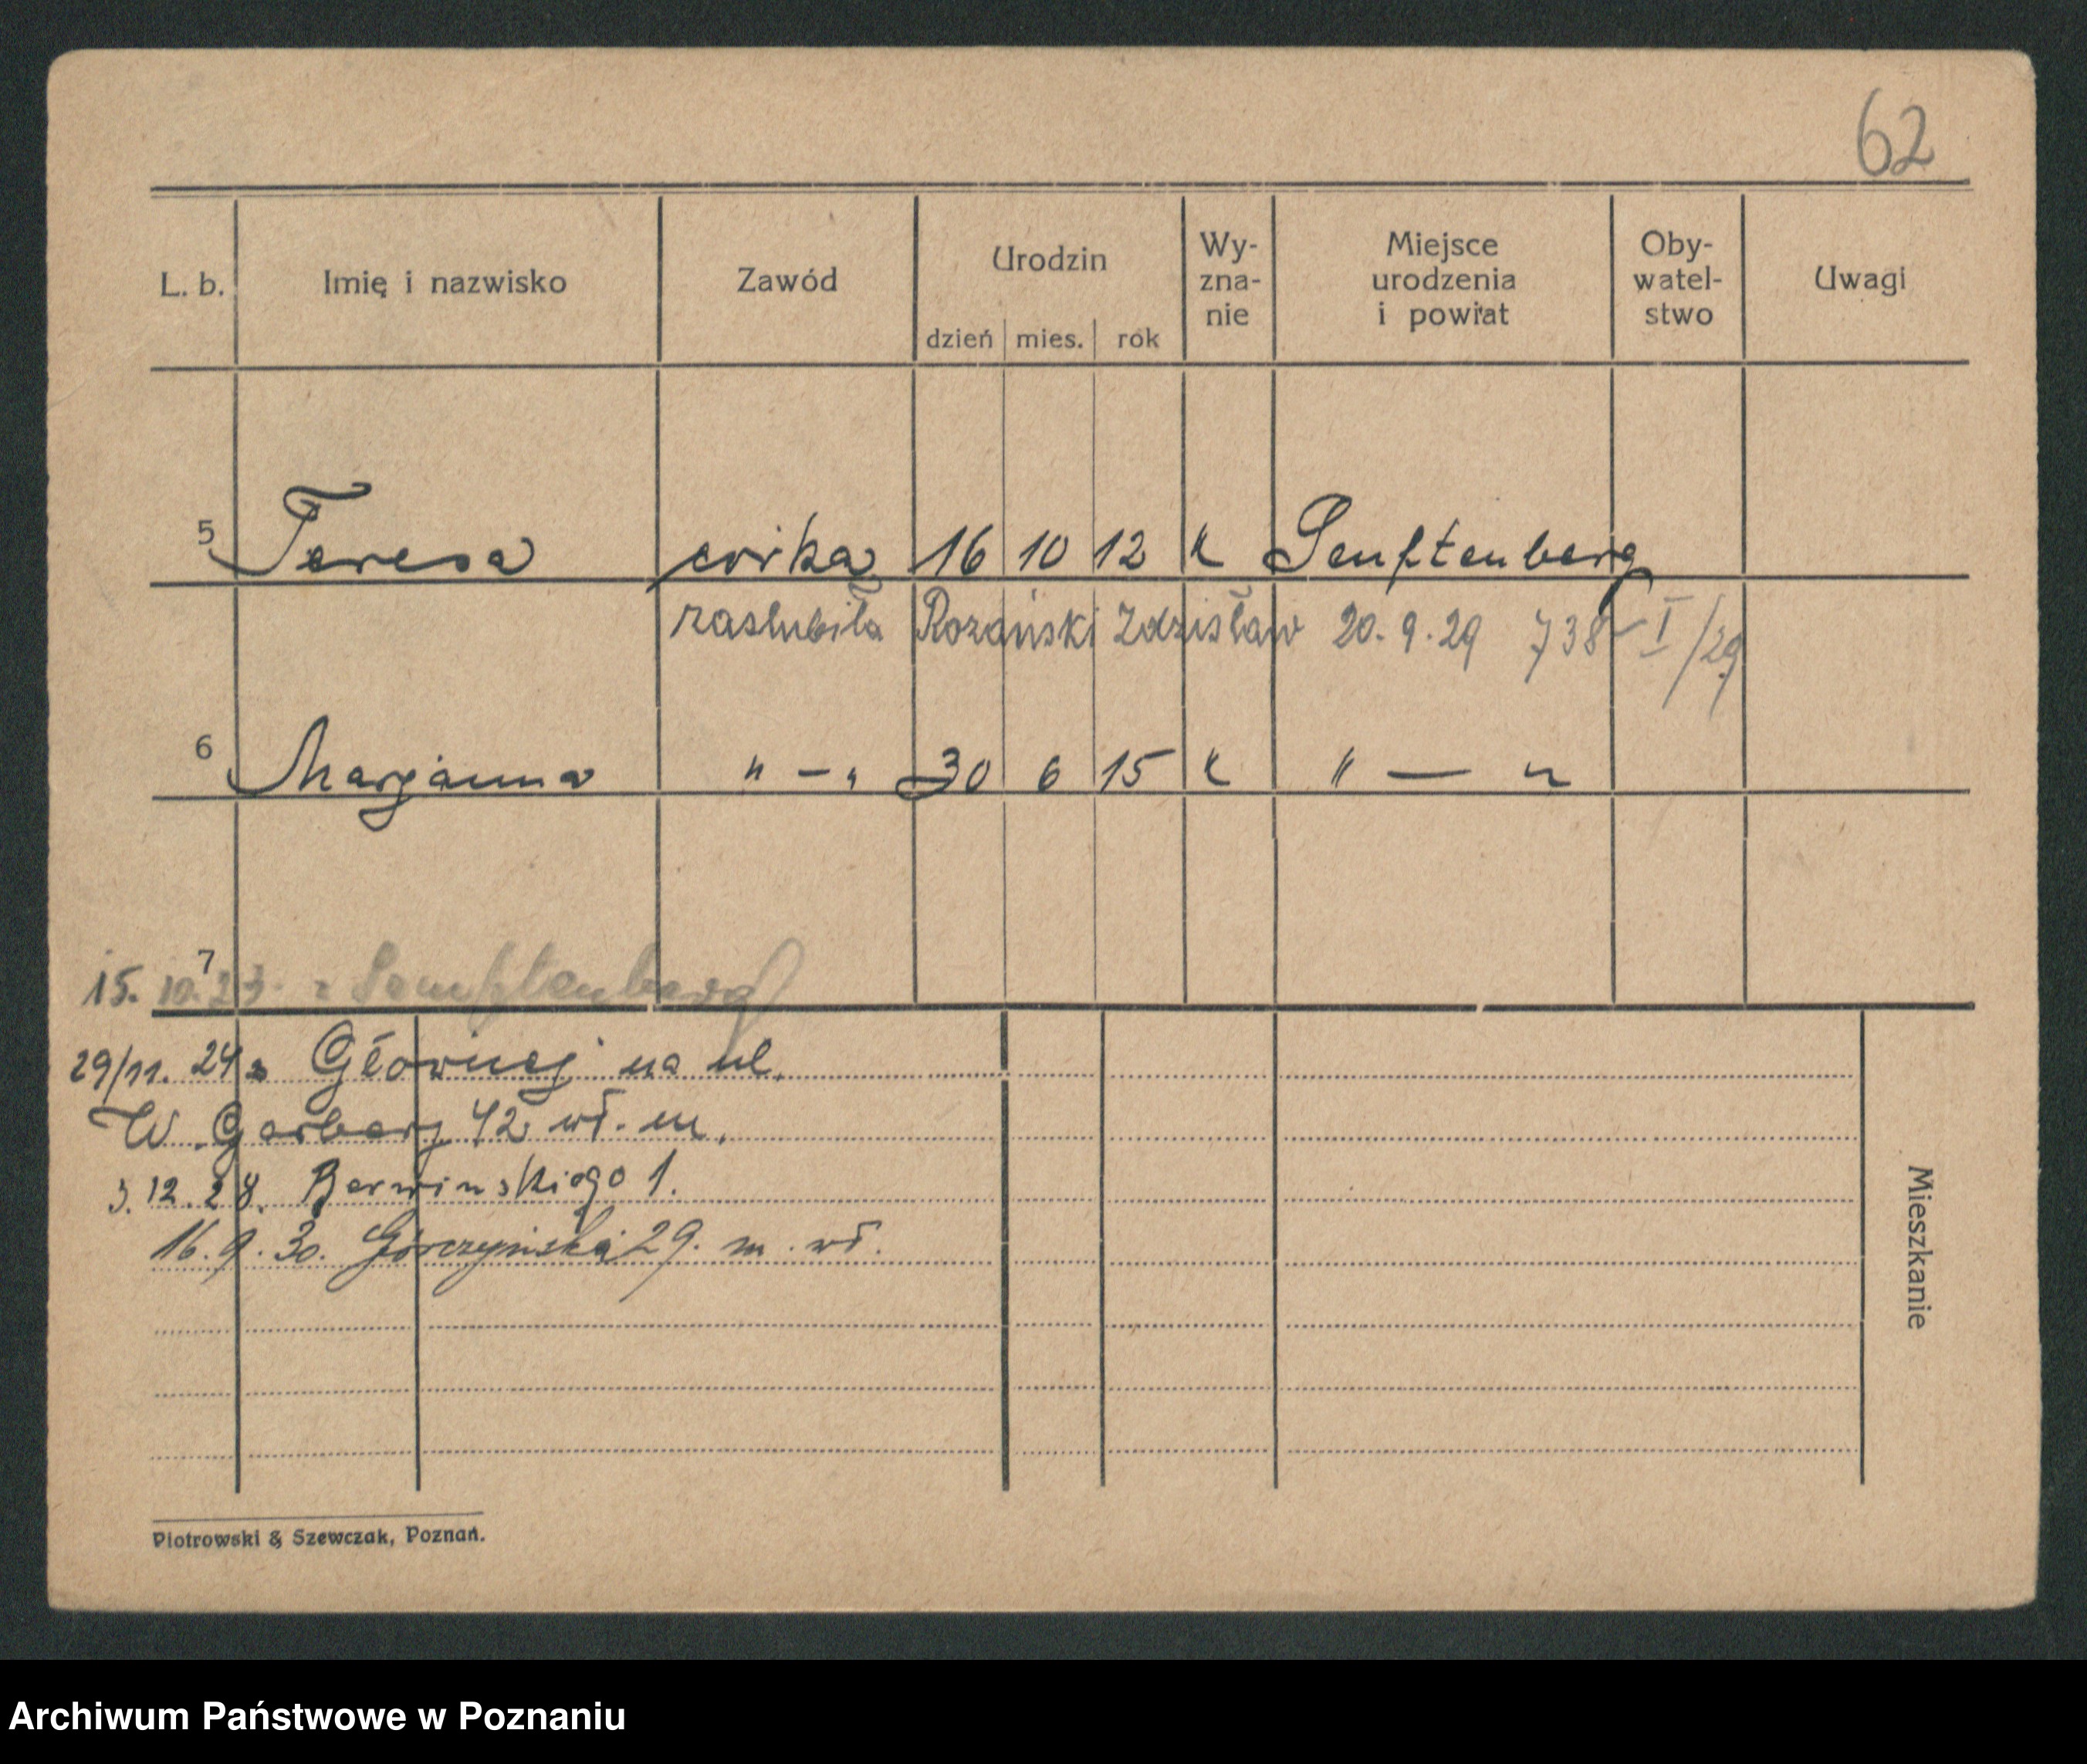 62
L. b. Imię i nazwisko Zawód Urodzin Wy-zna-nie Miejsce urodzenia i powiat Oby-watel-stwo Uwagi
dzień mies. rok
5 Teresa córka 16 10 12 k Senftenberg
zaslubiła Rozański Zdzisław 20. 9. 29 738 - I/29
6 Marjanna " - " 30 6 15 k " — "
7
15. 10. 23. z Senftenberg
29/11. 24 z Głównej na ul.
W. Garbary 42 wł. m.
3. 12. 28. Berwinskiego 1.
16. 9. 30. Górczyńska 29. m. wł.
Mieszkanie
Piotrowski & Szewczak, Poznań.
Archiwum Państwowe w Poznaniu